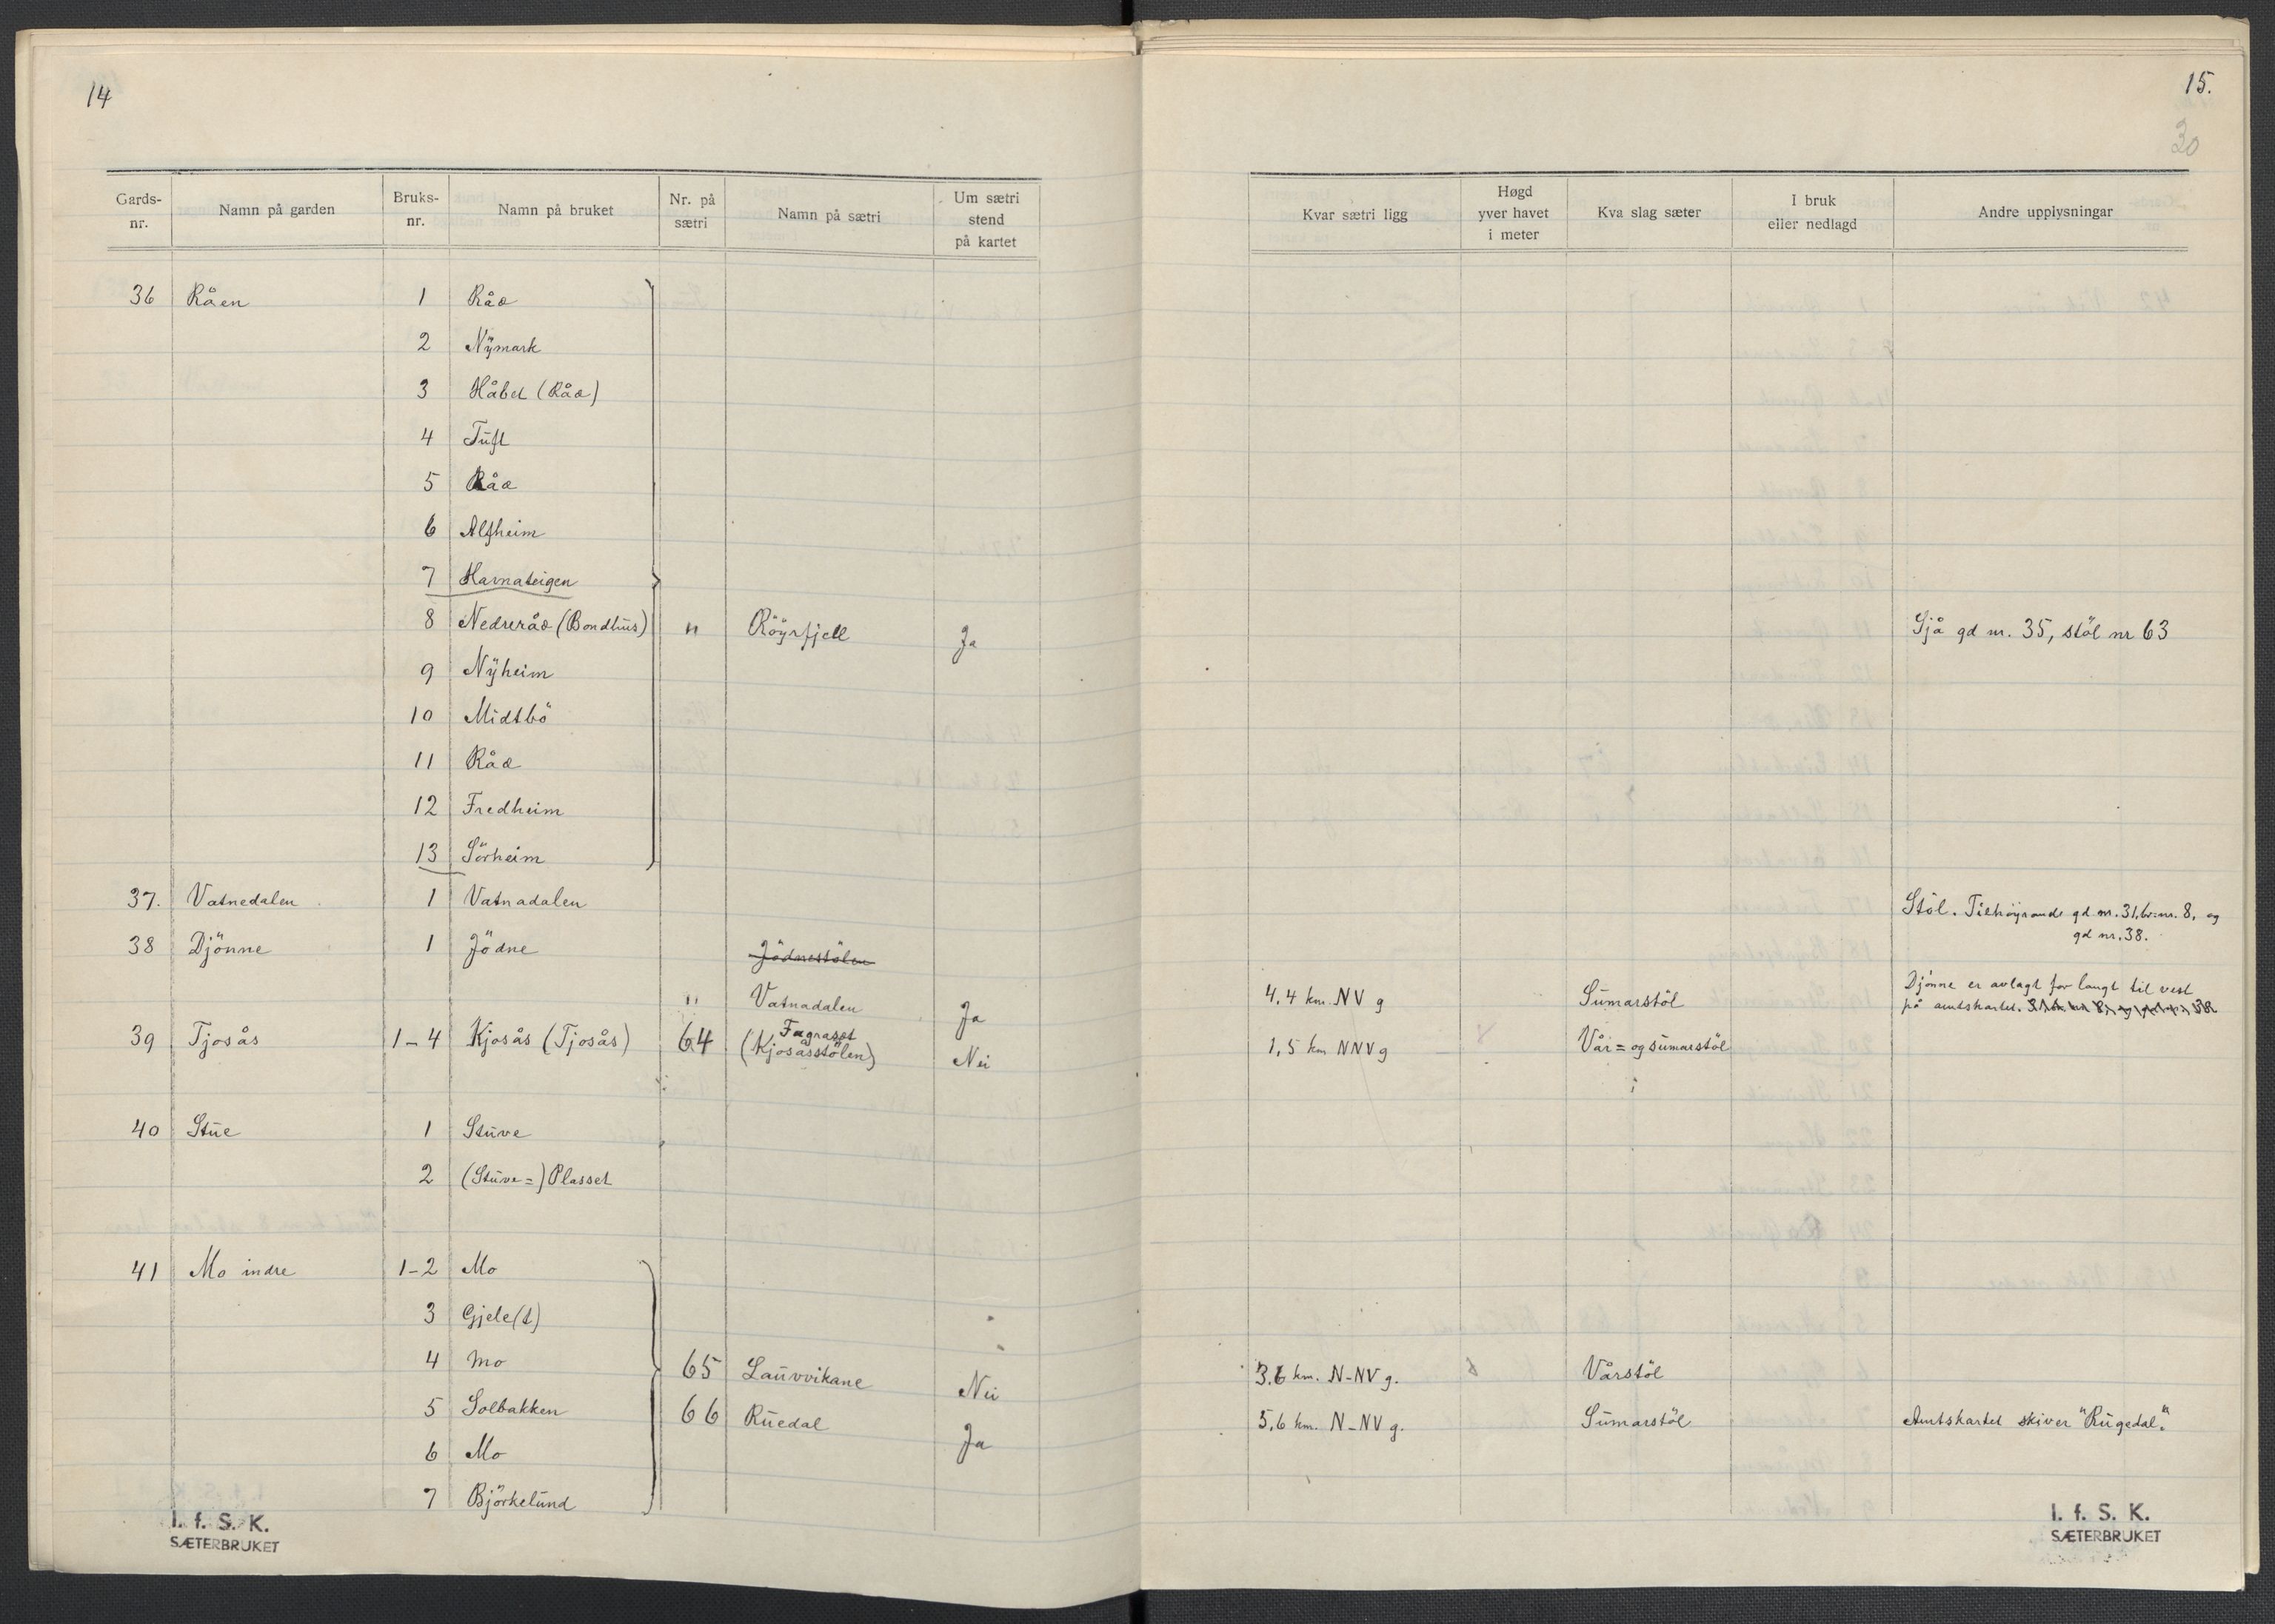 14
Gards-nr. Namn på garden Bruks-nr. Namn på bruket Nr. på sætri Namn på sætri Um sætri stend på kartet
36 Råen 1 Råa
2 Nymark
3 Håbet (Råa)
4 Tuft
5 Råa
6 Alfheim
7 Havnateigen
8 Nedreråa (Bondhus) " Röyrfjell Ja
9 Nyheim
10 Midtbö
11 Råa
12 Fredheim
13 Sörheim
37. Vatnedalen 1 Vatnadalen
38 Djönne 1 Jödne Jödnestölen
" Vatnadalen Ja
39 Tjosås 1-4 Kjosås (Tjosås) 64 Fagraset (Kjosåsstölen) Nei
40 Stue 1 Stuve
2 (Stuve=) Plasset
41 Mo indre 1-2 Mo
3 Gjele(t)
4 Mo 65 Lauvvikane Nei
5 Solbakken 66 Ruedal Ja
6 Mo
7 Björkelund
I. f. S. K.
SÆTERBRUKET
15.
30
Kvar sætri ligg Høgd yver havet i meter Kva slag sæter I bruk eller nedlagd Andre upplysningar
Sjå gd nr. 35, stöl nr 63
Stöl. Tilhöyrande gd nr. 31, br. nr. 8, og
gd nr. 38.
4,4 km. NV g Sumarstöl Djönne er avlagt for langt til vest
på amtskartet.
1,5 km NNV g Vår= og sumarstöl
3.6 km. N-NV g. Vårstöl
5,6 km. N-NV g. Sumarstöl Amtskartet skiver "Rugedal".
I. f. S. K.
SÆTERBRUKET